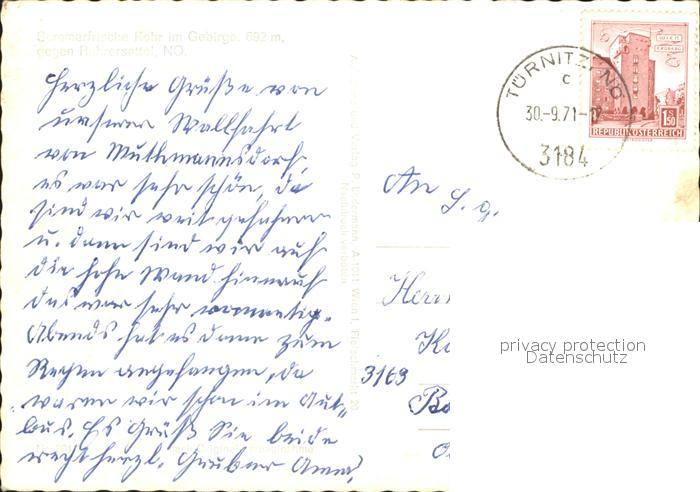 Sommerfrische Rohr im Gebirge, 692 m,
gegen Rohrersattel, NÖ.
Herzliche Grüße von
unserer Wallfahrt
von Muthmannsdorf,
es war sehr schön, da
sind wir weit gefahren
u. dann sind wir auf
die hohe Wand hinauf
das war sehr romantig.
Abends hat es dann zum
Regen angefangen, da
waren wir schon im Aut-
bus. Es Grüß Sie beide
recht herzl. Gruber Anna,
Nachdruck verboten
A-1011 Wien I, Fleischmarkt 20
TÜRNITZ, NÖ
c
30.-9.71-
3184
1.50
REPUBLIK ÖSTERREICH
An
S. g.
Herrn
3163
privacy protection
Datenschutz